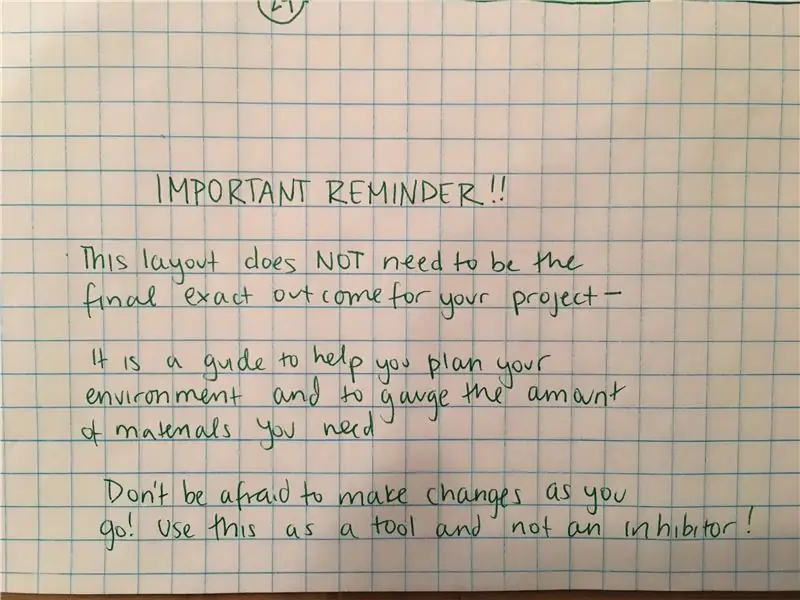 IMPORTANT REMINDER!!
This layout does NOT need to be the
final exact outcome for your project—
It is a guide to help you plan your
environment and to gauge the amount
of materials you need
Don't be afraid to make changes as you
go! Use this as a tool and not an inhibitor!